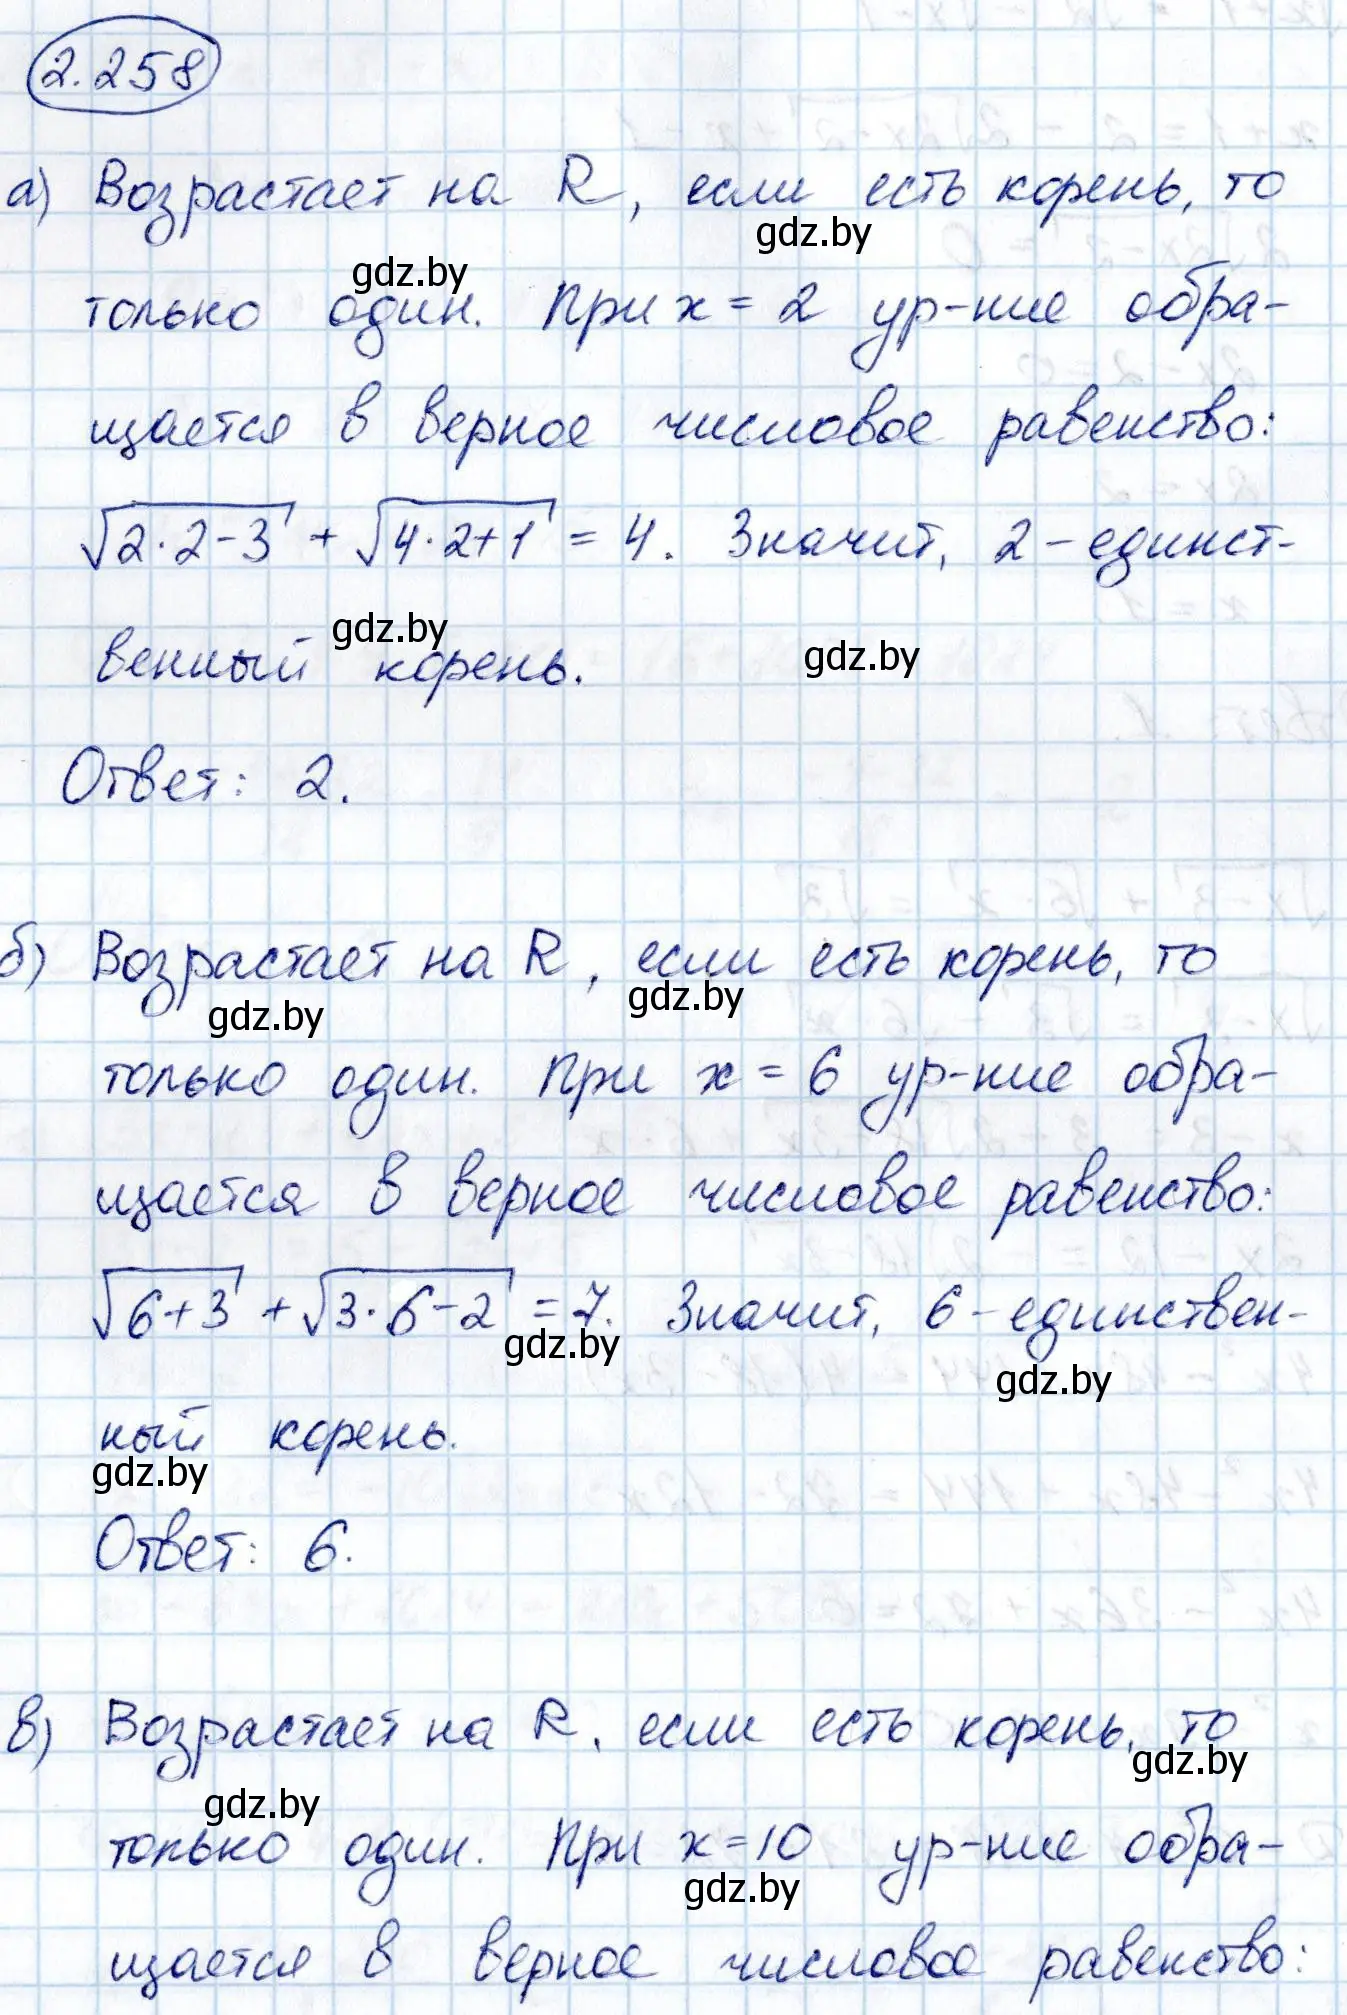 2.258
а) Возрастает на R, если есть корень, то
gdz.by
gdz.by
только один. При x = 2 ур-ние обра-
щается в верное числовое равенство:
√(2·2-3) + √(4·2+1) = 4. Значит, 2 - единст-
gdz.by
венный корень.
gdz.by
Ответ: 2.
б) Возрастает на R, если есть корень, то
gdz.by
gdz.by
только один. При x = 6 ур-ние обра-
щается в верное числовое равенство:
√(6+3) + √(3·6-2) = 7. Значит, 6 - единствен-
gdz.by
gdz.by
ный корень.
gdz.by
Ответ: 6.
в) Возрастает на R, если есть корень, то
gdz.by
gdz.by
только один. При x = 10 ур-ние обра-
gdz.by
щается в верное числовое равенство: